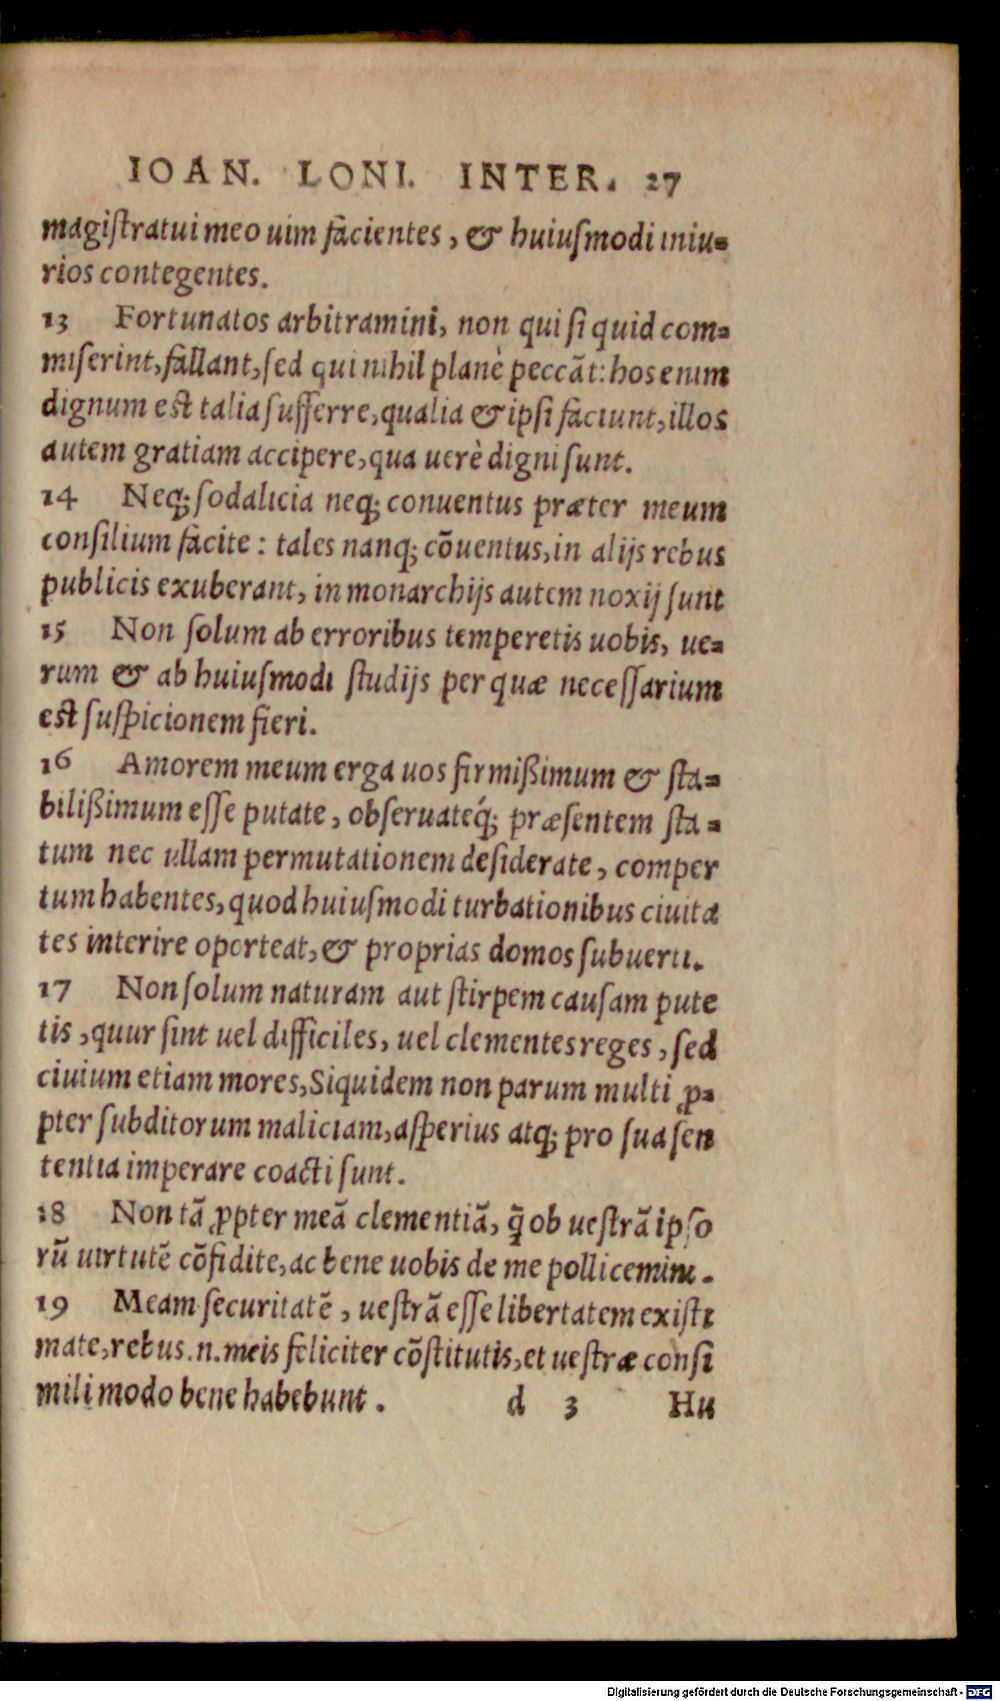 IOAN. LONI. INTER. 27
magiſtratui meo uim facientes, & huiuſmodi iniu=
rios contegentes.
13 Fortunatos arbitramini, non qui ſi quid com=
miſerint, fallant, ſed qui nihil planè peccāt: hos enim
dignum eſt talia ſufferre, qualia & ipſi faciunt, illos
autem gratiam accipere, qua uerè digni ſunt.
14 Neq; ſodalicia neq; conuentus præter meum
conſilium facite: tales nanq; cōuentus, in alijs rebus
publicis exuberant, in monarchijs autem noxij ſunt
15 Non ſolum ab erroribus temperetis uobis, ue=
rum & ab huiuſmodi ſtudijs per quæ neceſſarium
eſt ſuſpicionem fieri.
16 Amorem meum erga uos firmißimum & ſta=
bilißimum eſſe putate, obſeruateq́; præſentem ſta=
tum nec ullam permutationem deſiderate, comper
tum habentes, quod huiuſmodi turbationibus ciuita
tes interire oporteat, & proprias domos ſubuerti.
17 Non ſolum naturam aut ſtirpem cauſam pute
tis, quur ſint uel difficiles, uel clementes reges, ſed
ciuium etiam mores, Siquidem non parum multi ꝓ=
pter ſubditorum maliciam, aſperius atq; pro ſua ſen
tentia imperare coacti ſunt.
18 Non tā ꝓpter meā clementiā, q̄ ob ueſtrā ipſo
rū uirtutē cōfidite, ac bene uobis de me pollicemini.
19 Meam ſecuritatē, ueſtrā eſſe libertatem exiſti
mate, rebus .n. meis feliciter cōſtitutis, et ueſtræ conſi
mili modo bene habebunt. d 3 Hu
Digitalisierung gefördert durch die Deutsche Forschungsgemeinschaft - DFG